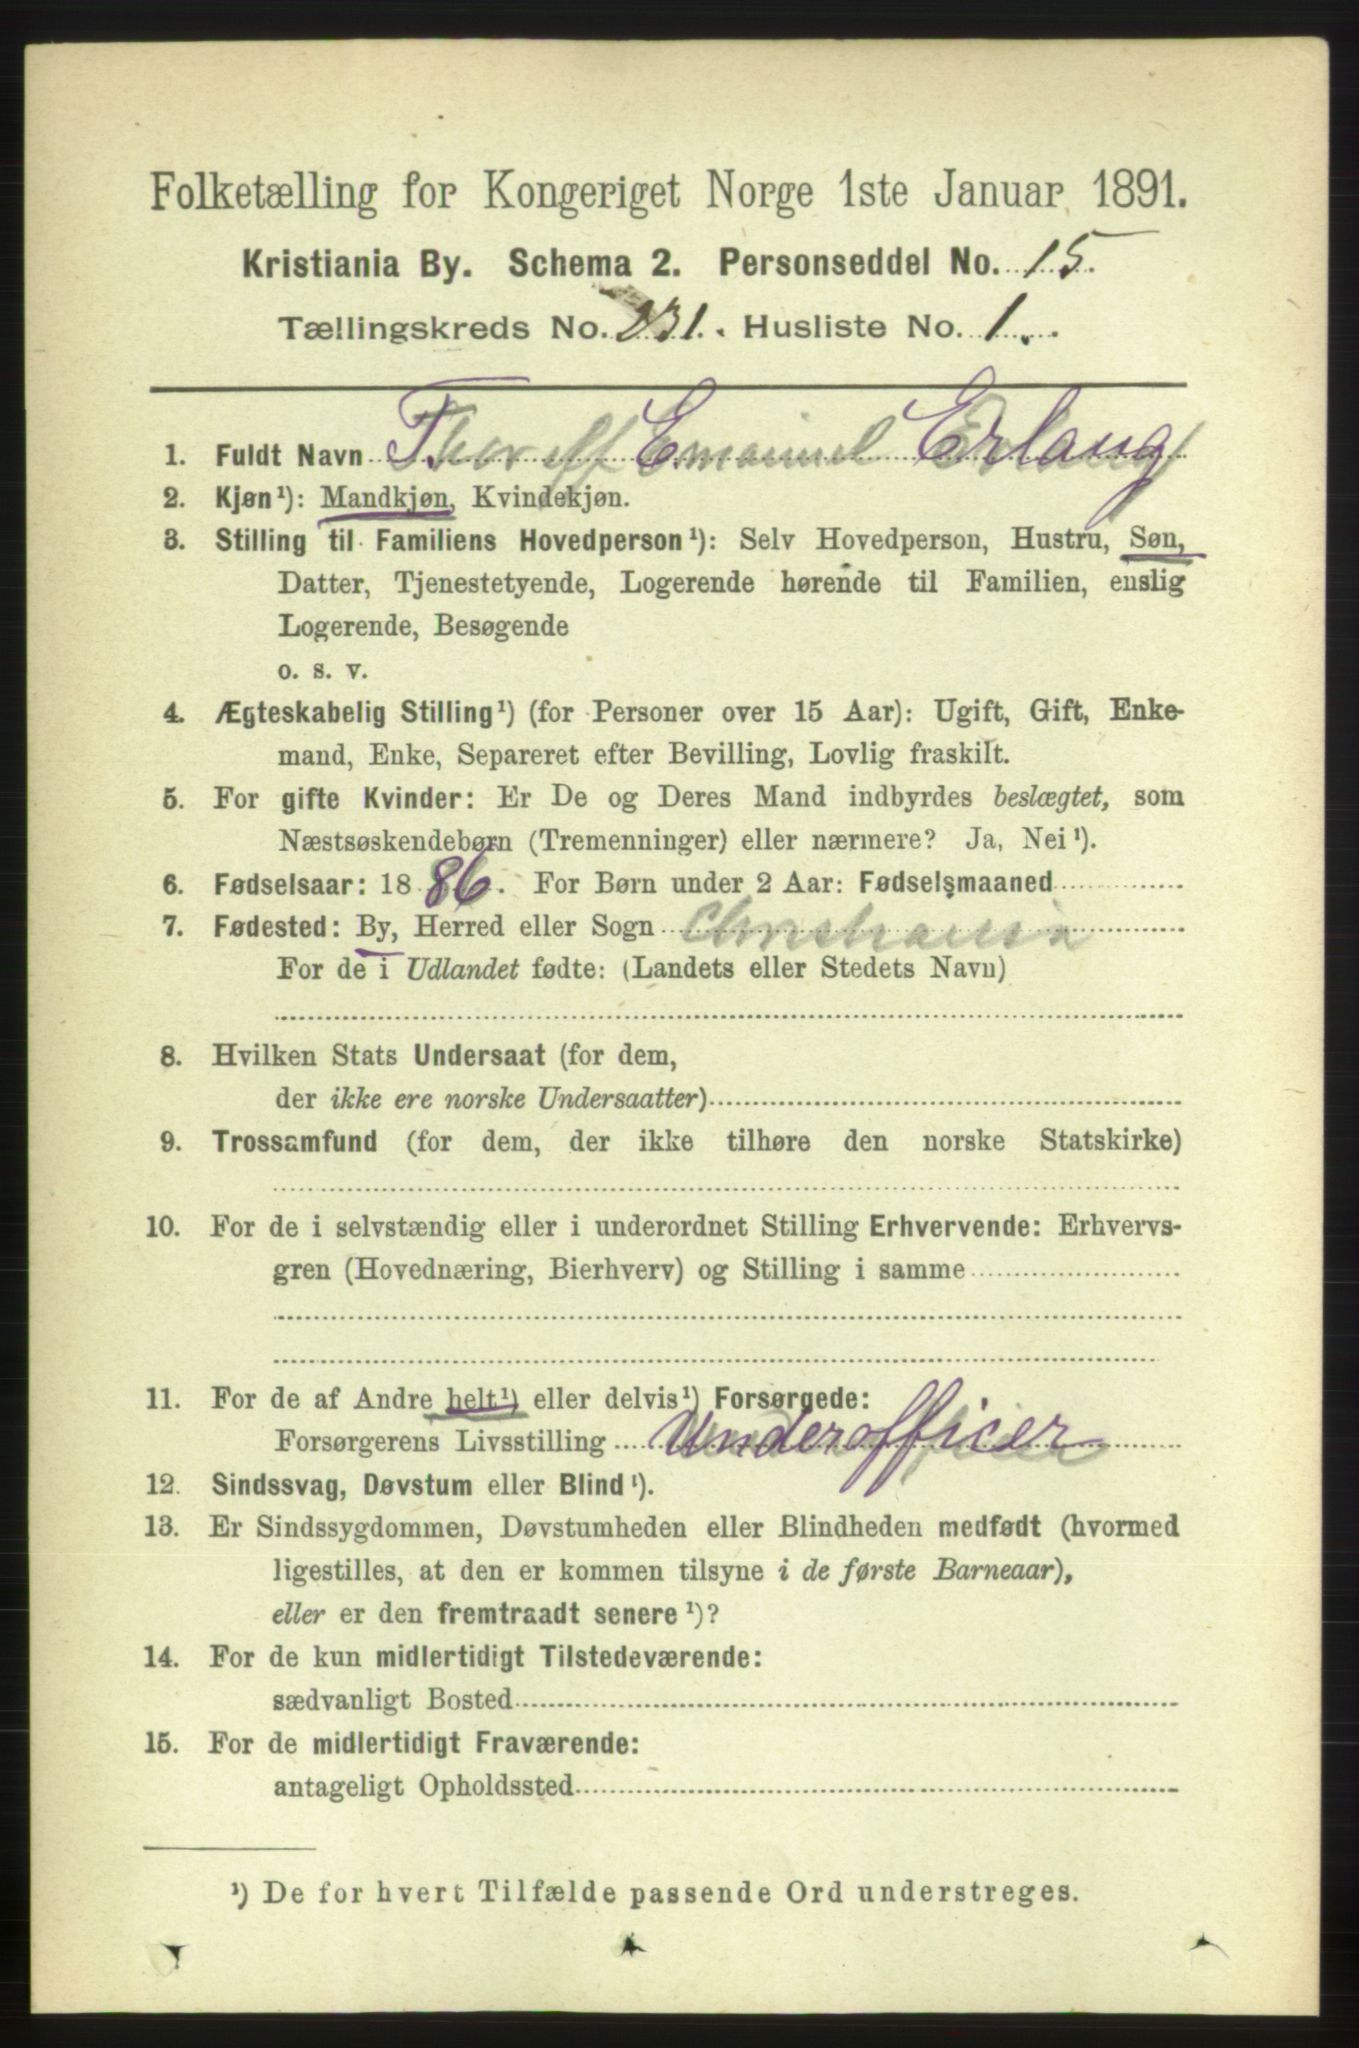 Folketælling for Kongeriget Norge 1ste Januar 1891.
Kristiania By. Schema 2. Personseddel No. 15.
Tællingskreds No. 231. Husliste No. 1.
1. Fuldt Navn Emanuel Erlang
2. Kjøn¹): Mandkjøn, Kvindekjøn.
3. Stilling til Familiens Hovedperson¹): Selv Hovedperson, Hustru, Søn,
Datter, Tjenestetyende, Logerende hørende til Familien, enslig
Logerende, Besøgende
o. s. v.
4. Ægteskabelig Stilling¹) (for Personer over 15 Aar): Ugift, Gift, Enke-
mand, Enke, Separeret efter Bevilling, Lovlig fraskilt.
5. For gifte Kvinder: Er De og Deres Mand indbyrdes beslægtet, som
Næstsøskendebørn (Tremenninger) eller nærmere? Ja, Nei¹).
6. Fødselsaar: 1886. For Børn under 2 Aar: Fødselsmaaned
7. Fødested: By, Herred eller Sogn Christiania
For de i Udlandet fødte: (Landets eller Stedets Navn)
8. Hvilken Stats Undersaat (for dem,
der ikke ere norske Undersaatter)
9. Trossamfund (for dem, der ikke tilhøre den norske Statskirke)
10. For de i selvstændig eller i underordnet Stilling Erhvervende: Erhvervs-
gren (Hovednæring, Bierhverv) og Stilling i samme
11. For de af Andre helt¹) eller delvis¹) Forsørgede:
Forsørgerens Livsstilling Underofficer
12. Sindssvag, Døvstum eller Blind¹).
13. Er Sindssygdommen, Døvstumheden eller Blindheden medfødt (hvormed
ligestilles, at den er kommen tilsyne i de første Barneaar),
eller er den fremtraadt senere¹)?
14. For de kun midlertidigt Tilstedeværende:
sædvanligt Bosted
15. For de midlertidigt Fraværende:
antageligt Opholdssted
¹) De for hvert Tilfælde passende Ord understreges.